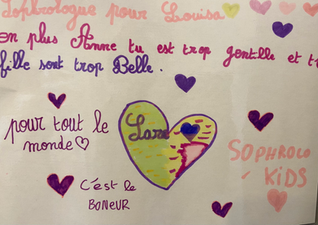 Sophrologue pour Louisa
en plus Anne tu est trop gentille et t
fille sont trop Belle.
pour tout le
monde
C'est le
BONEUR
SOPHROLO
KIDS